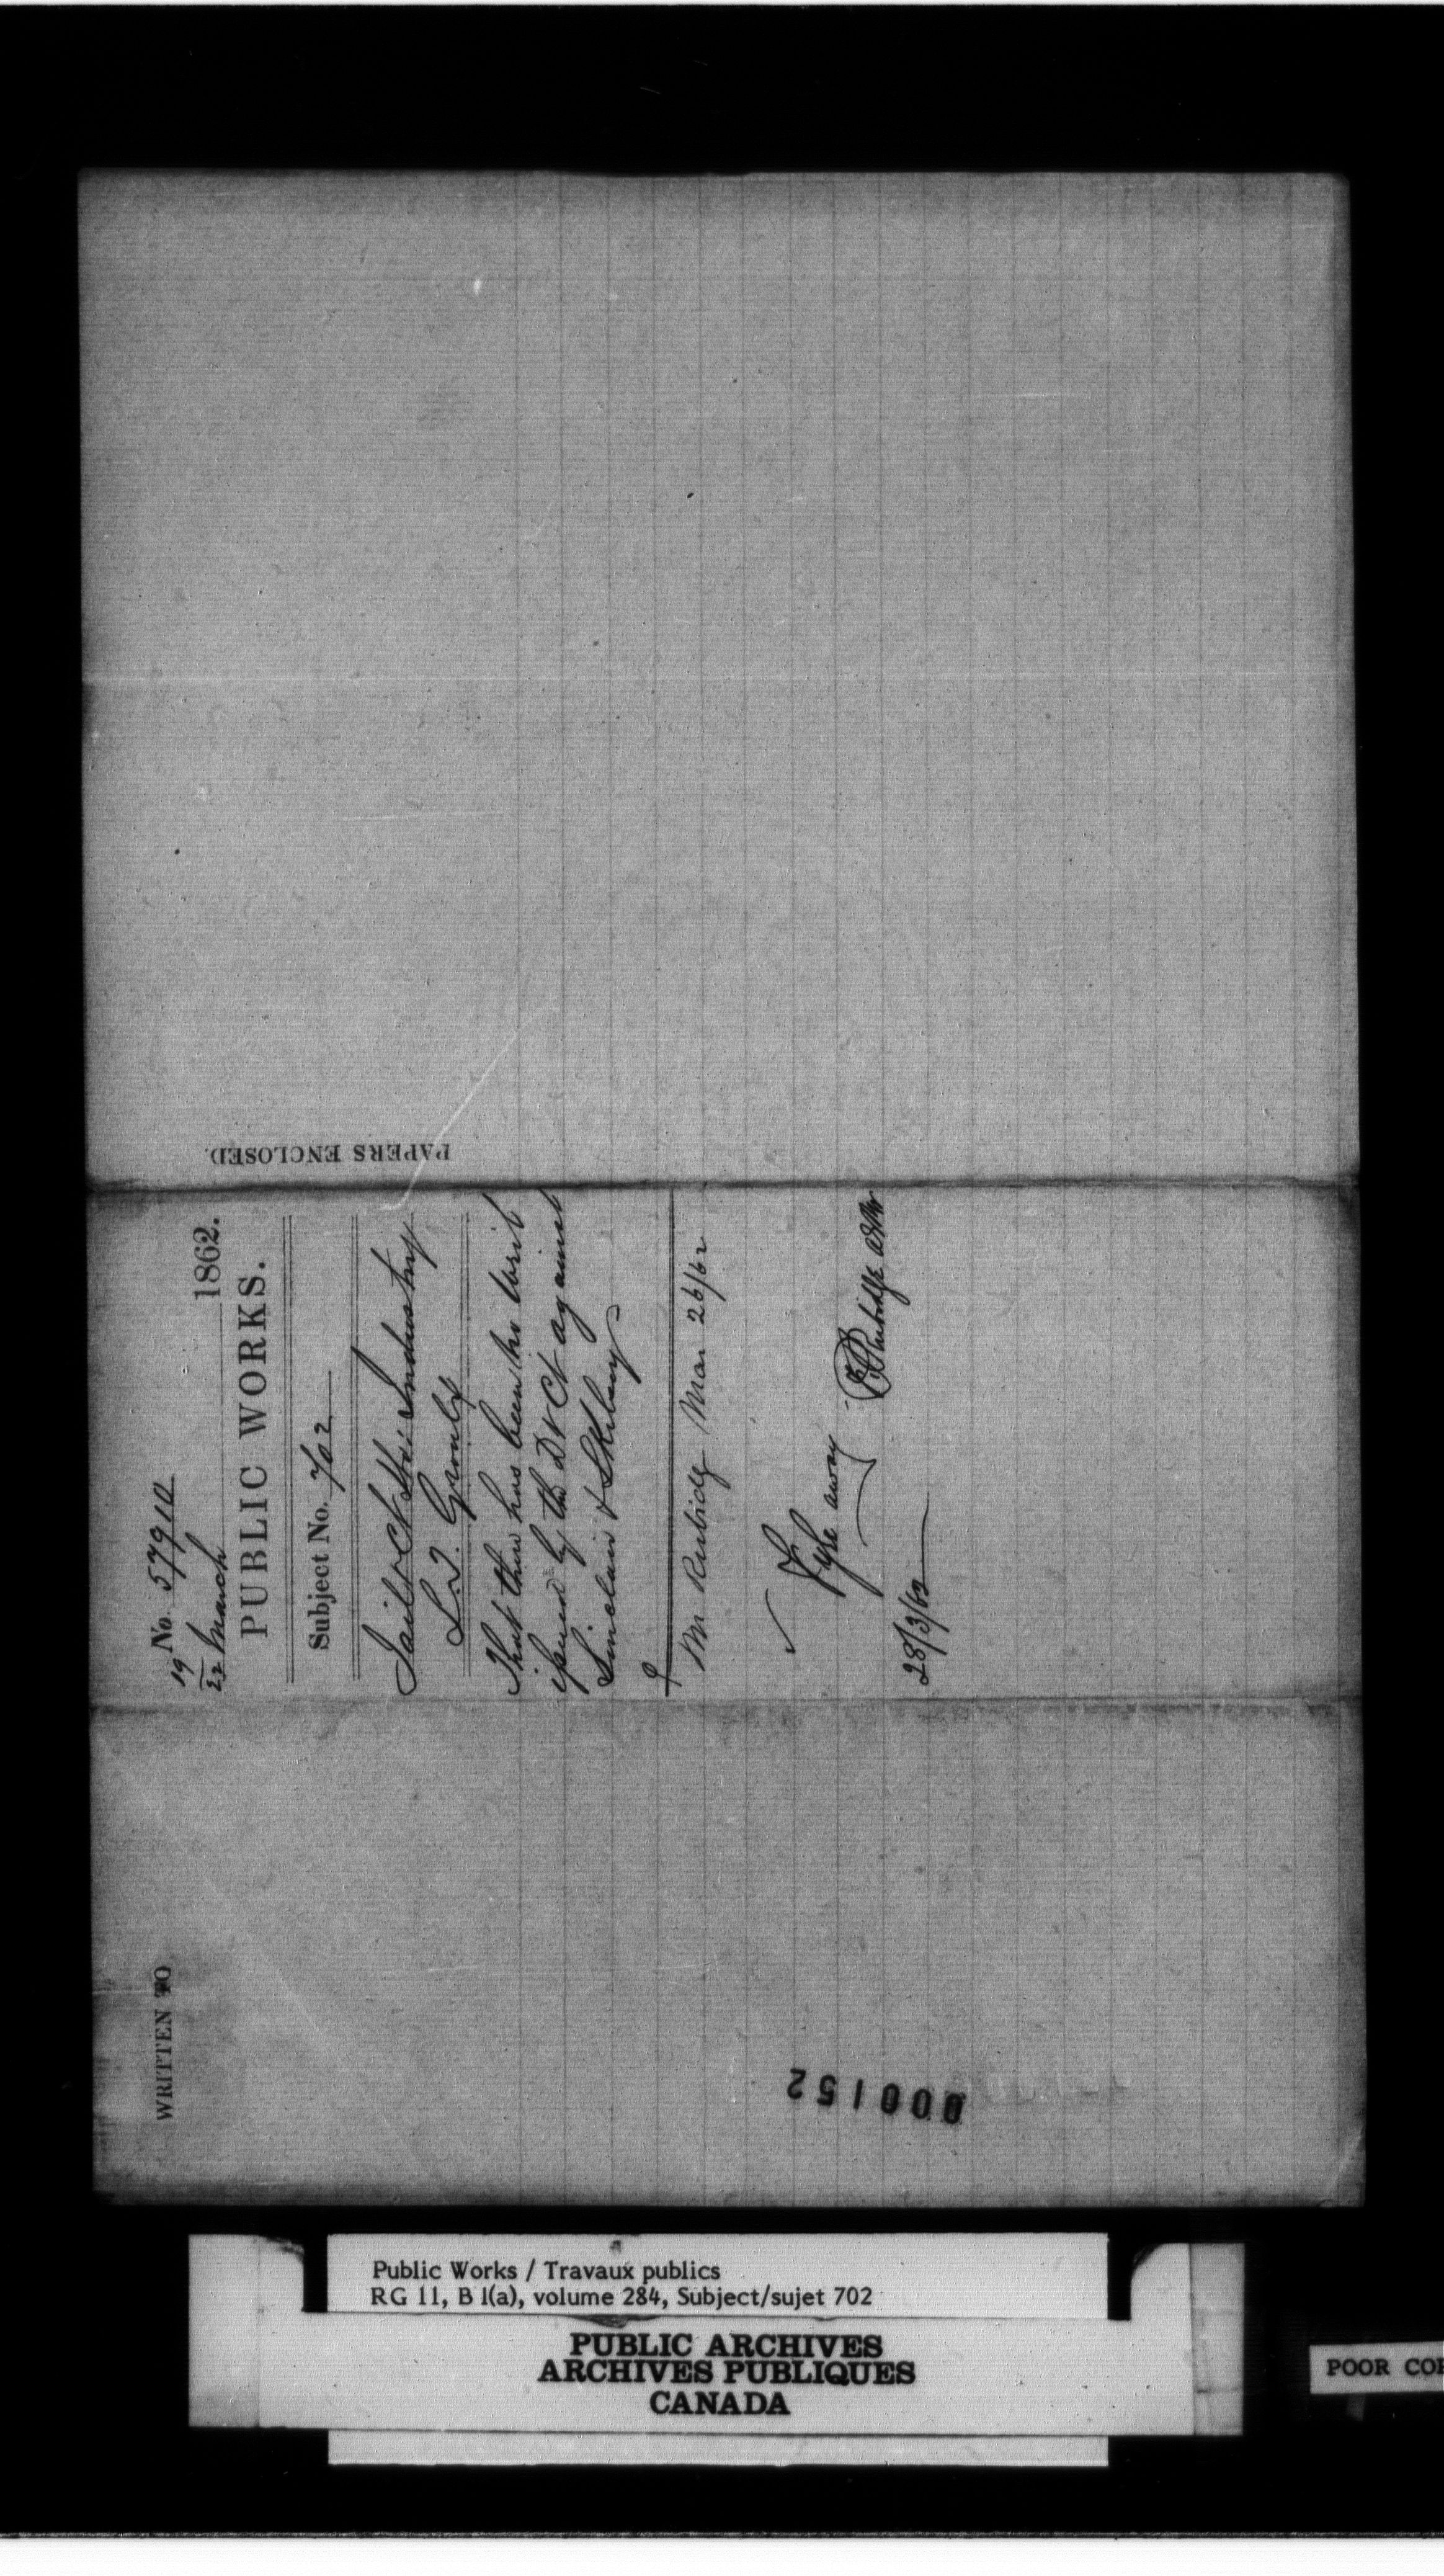 No. 57910
19
22 March 1862.
PUBLIC WORKS.
Subject No. 702
Jail & Ct Hse Industry
L. T. Groulx
That there has been no writ
issued by the Dt Ct against
Sinclair & Skelsey
Mr Rubidge Mar 26/62
Fyle away
FPRubidge
28/3/62
PAPERS ENCLOSED.
WRITTEN TO
000152
Public Works / Travaux publics
RG 11, B 1(a), volume 284, Subject/sujet 702
PUBLIC ARCHIVES
ARCHIVES PUBLIQUES
CANADA
POOR COP